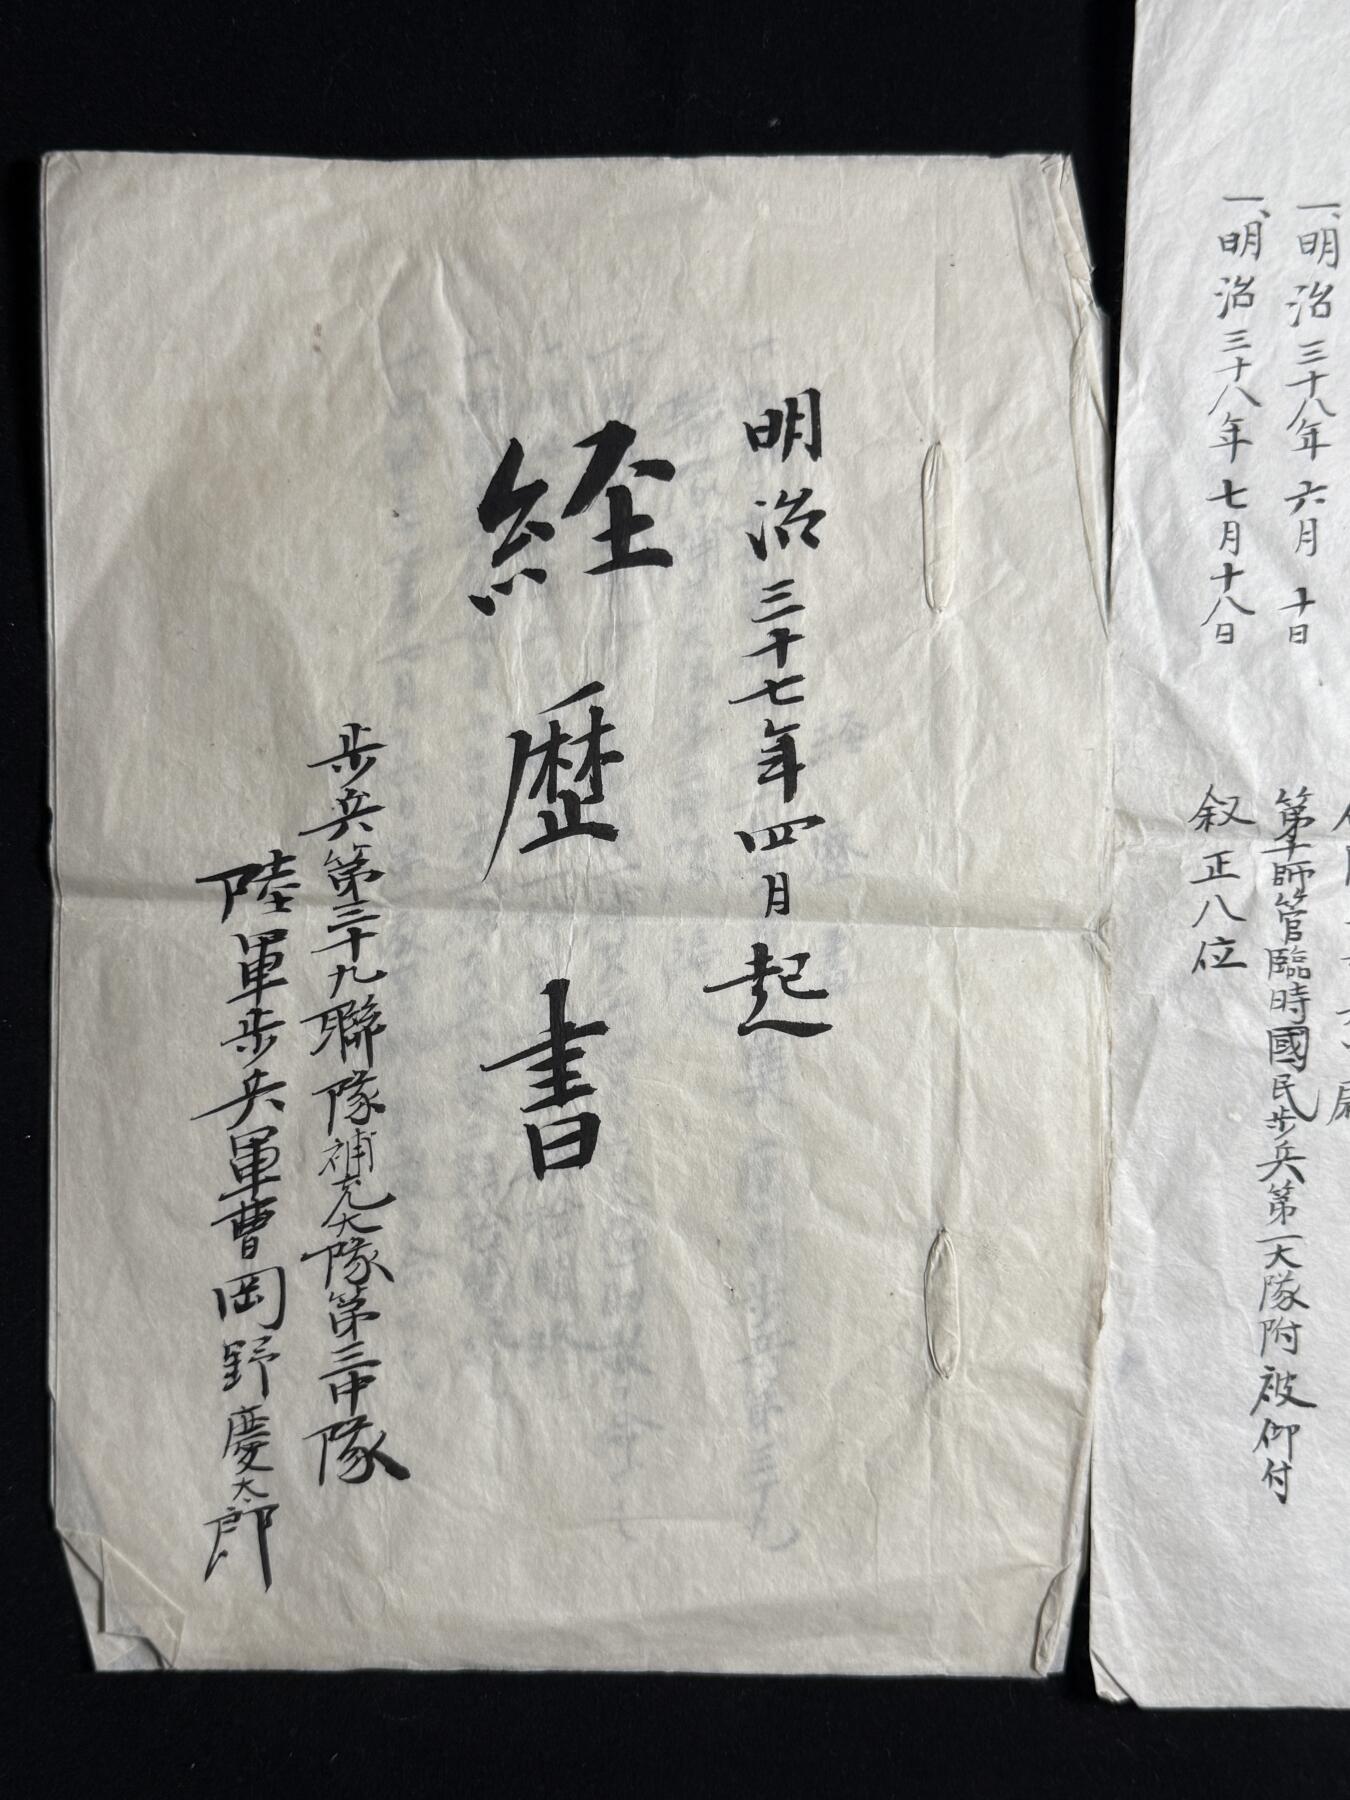 一、明治三十八年六月十日 第十師管臨時國民歩兵第一大隊附被仰付
一、明治三十八年七月十八日 叙正八位
明治三十七年四月起
経歴書
歩兵第三十九聯隊補充大隊第三中隊
陸軍歩兵軍曹岡野慶太郎